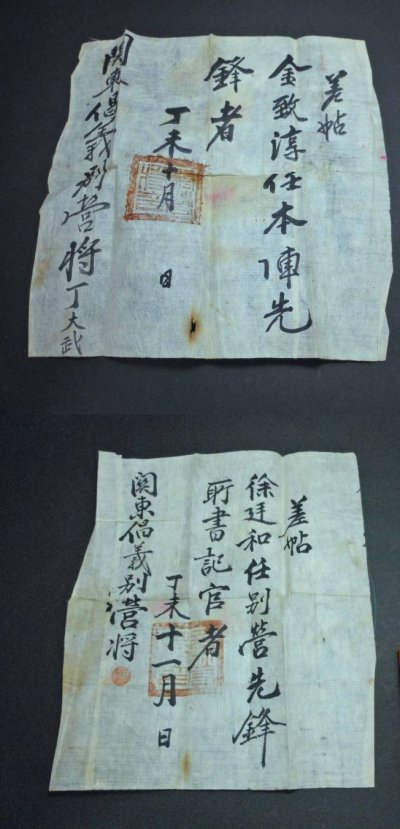 差帖
金致淳任本陣先
鋒者
丁未十月 日
關東倡義別營將丁大武
差帖
徐廷和任别營先鋒
所書記官者
丁未十一月 日
關東倡義别營將